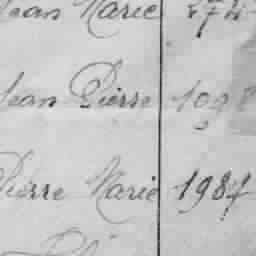 Jean Marie 274
Jean Pierre 109
Pierre Marie 1987